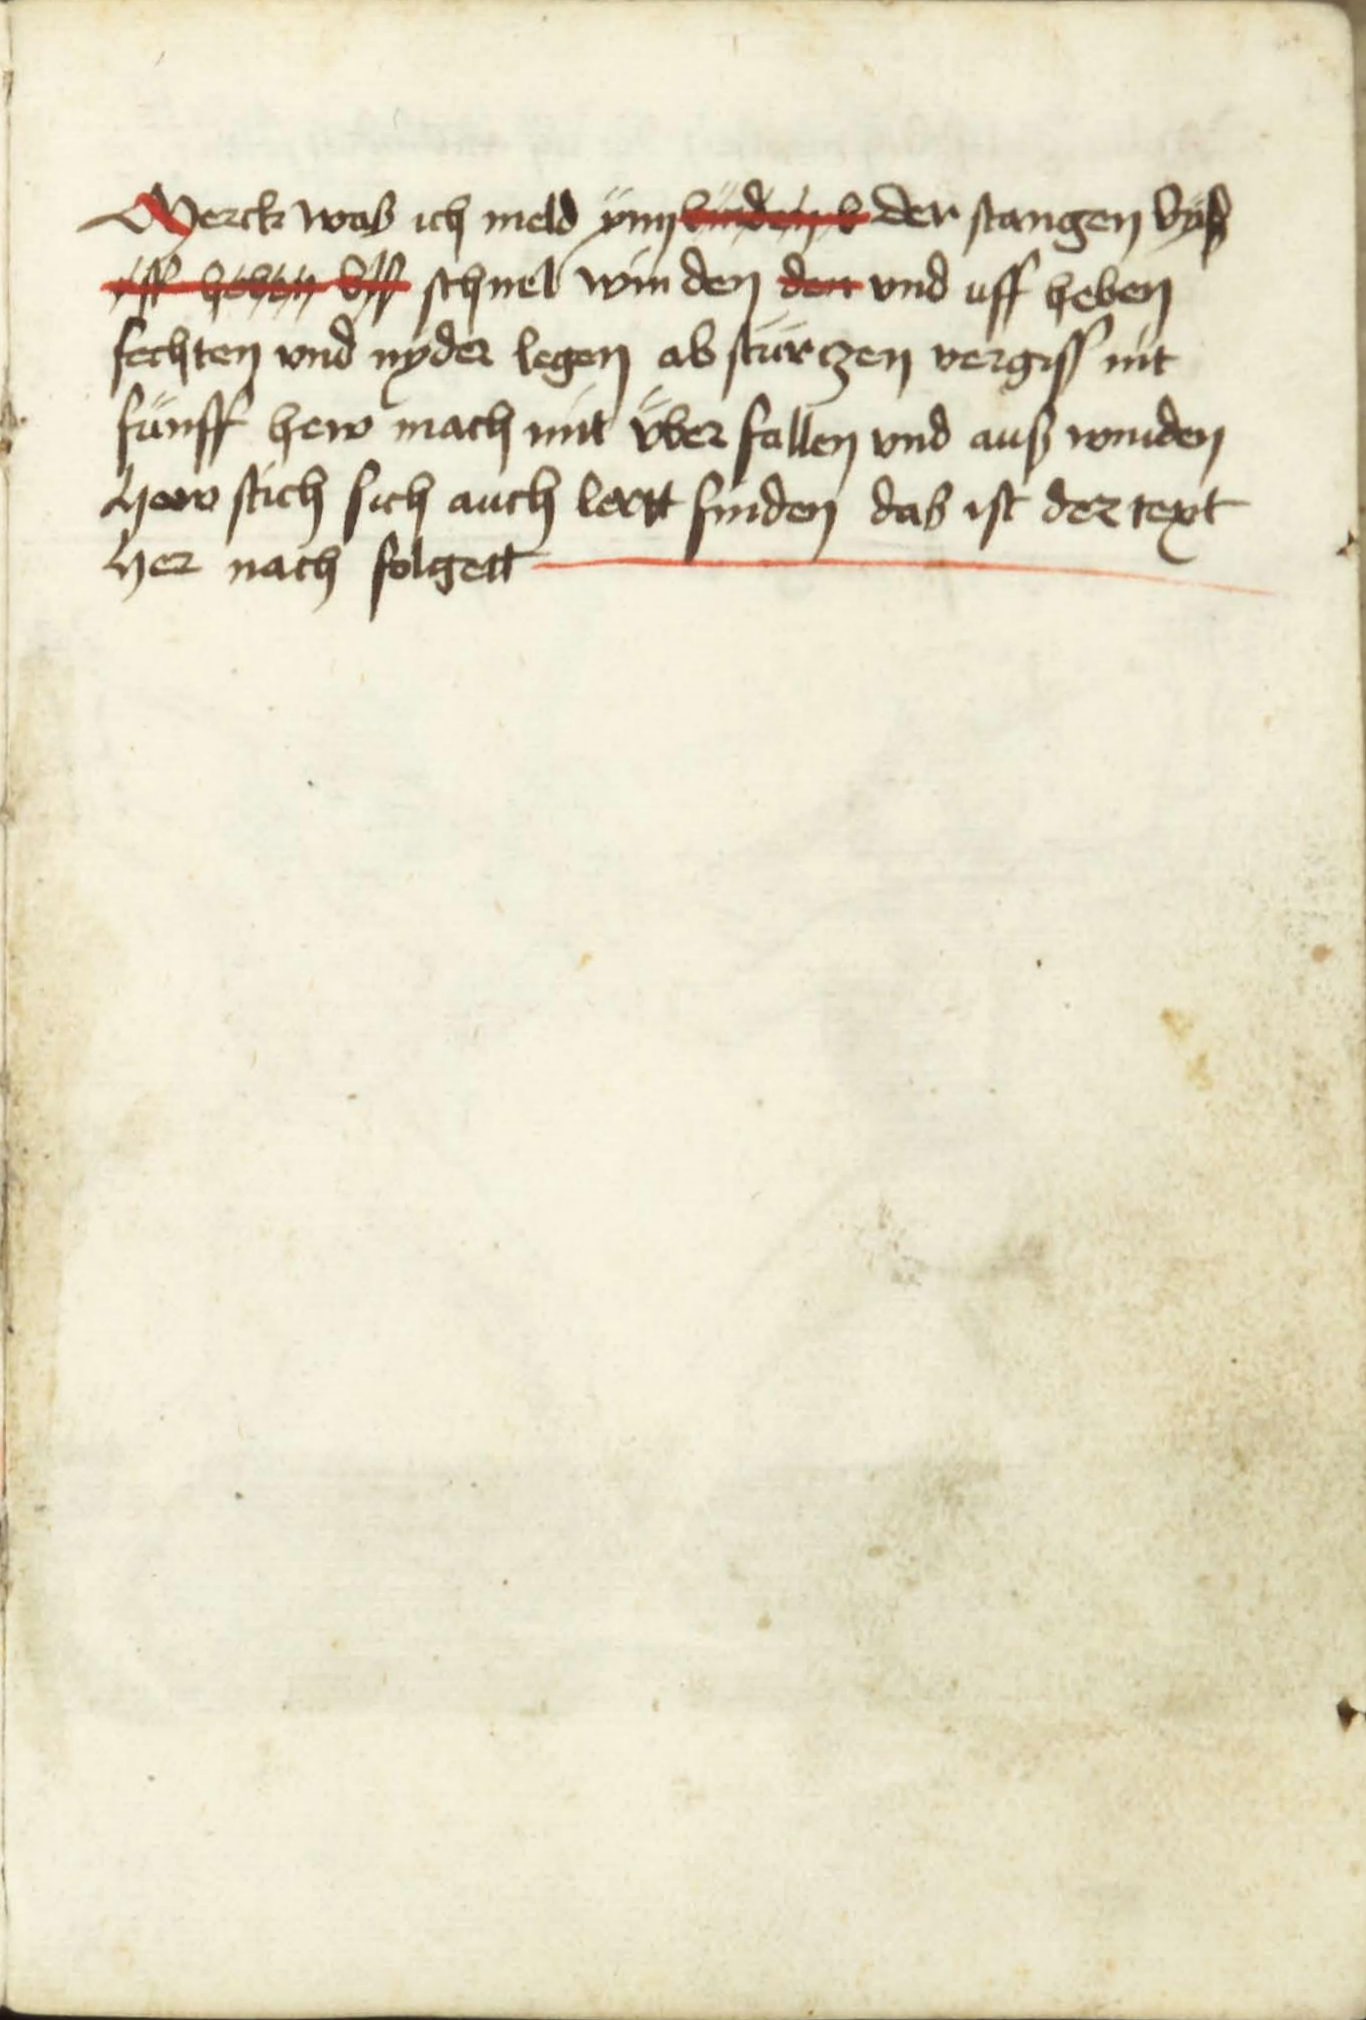 Merck waß ich meld ÿnn der stangen byß
schnel winden den und uff heben
fechten vnd nyder legen ab stürczen vergiss nit
fünff hew mach mit über fallen vnd auß winden
Hew stich sich auch lertt finden daß ist der text
Her nach folgett